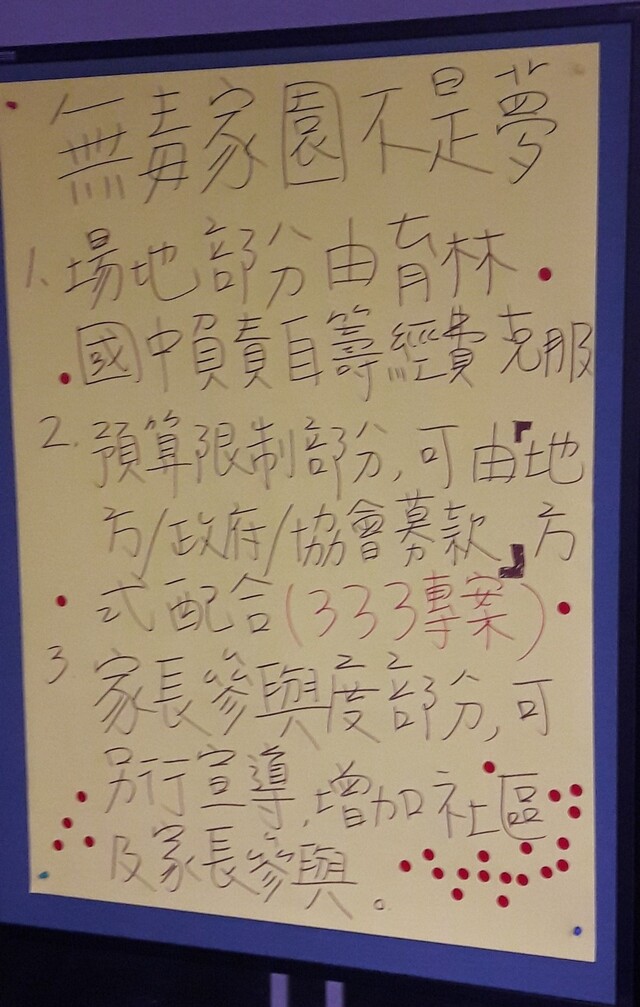 無毒家園不是夢
1. 場地部分由育林
國中負責自籌經費克服
2. 預算限制部份,可由「地
方/政府/協會募款」方
式配合(333專案)
3 家長參與度部分,可
另行宣導,增加社區
及家長參與。